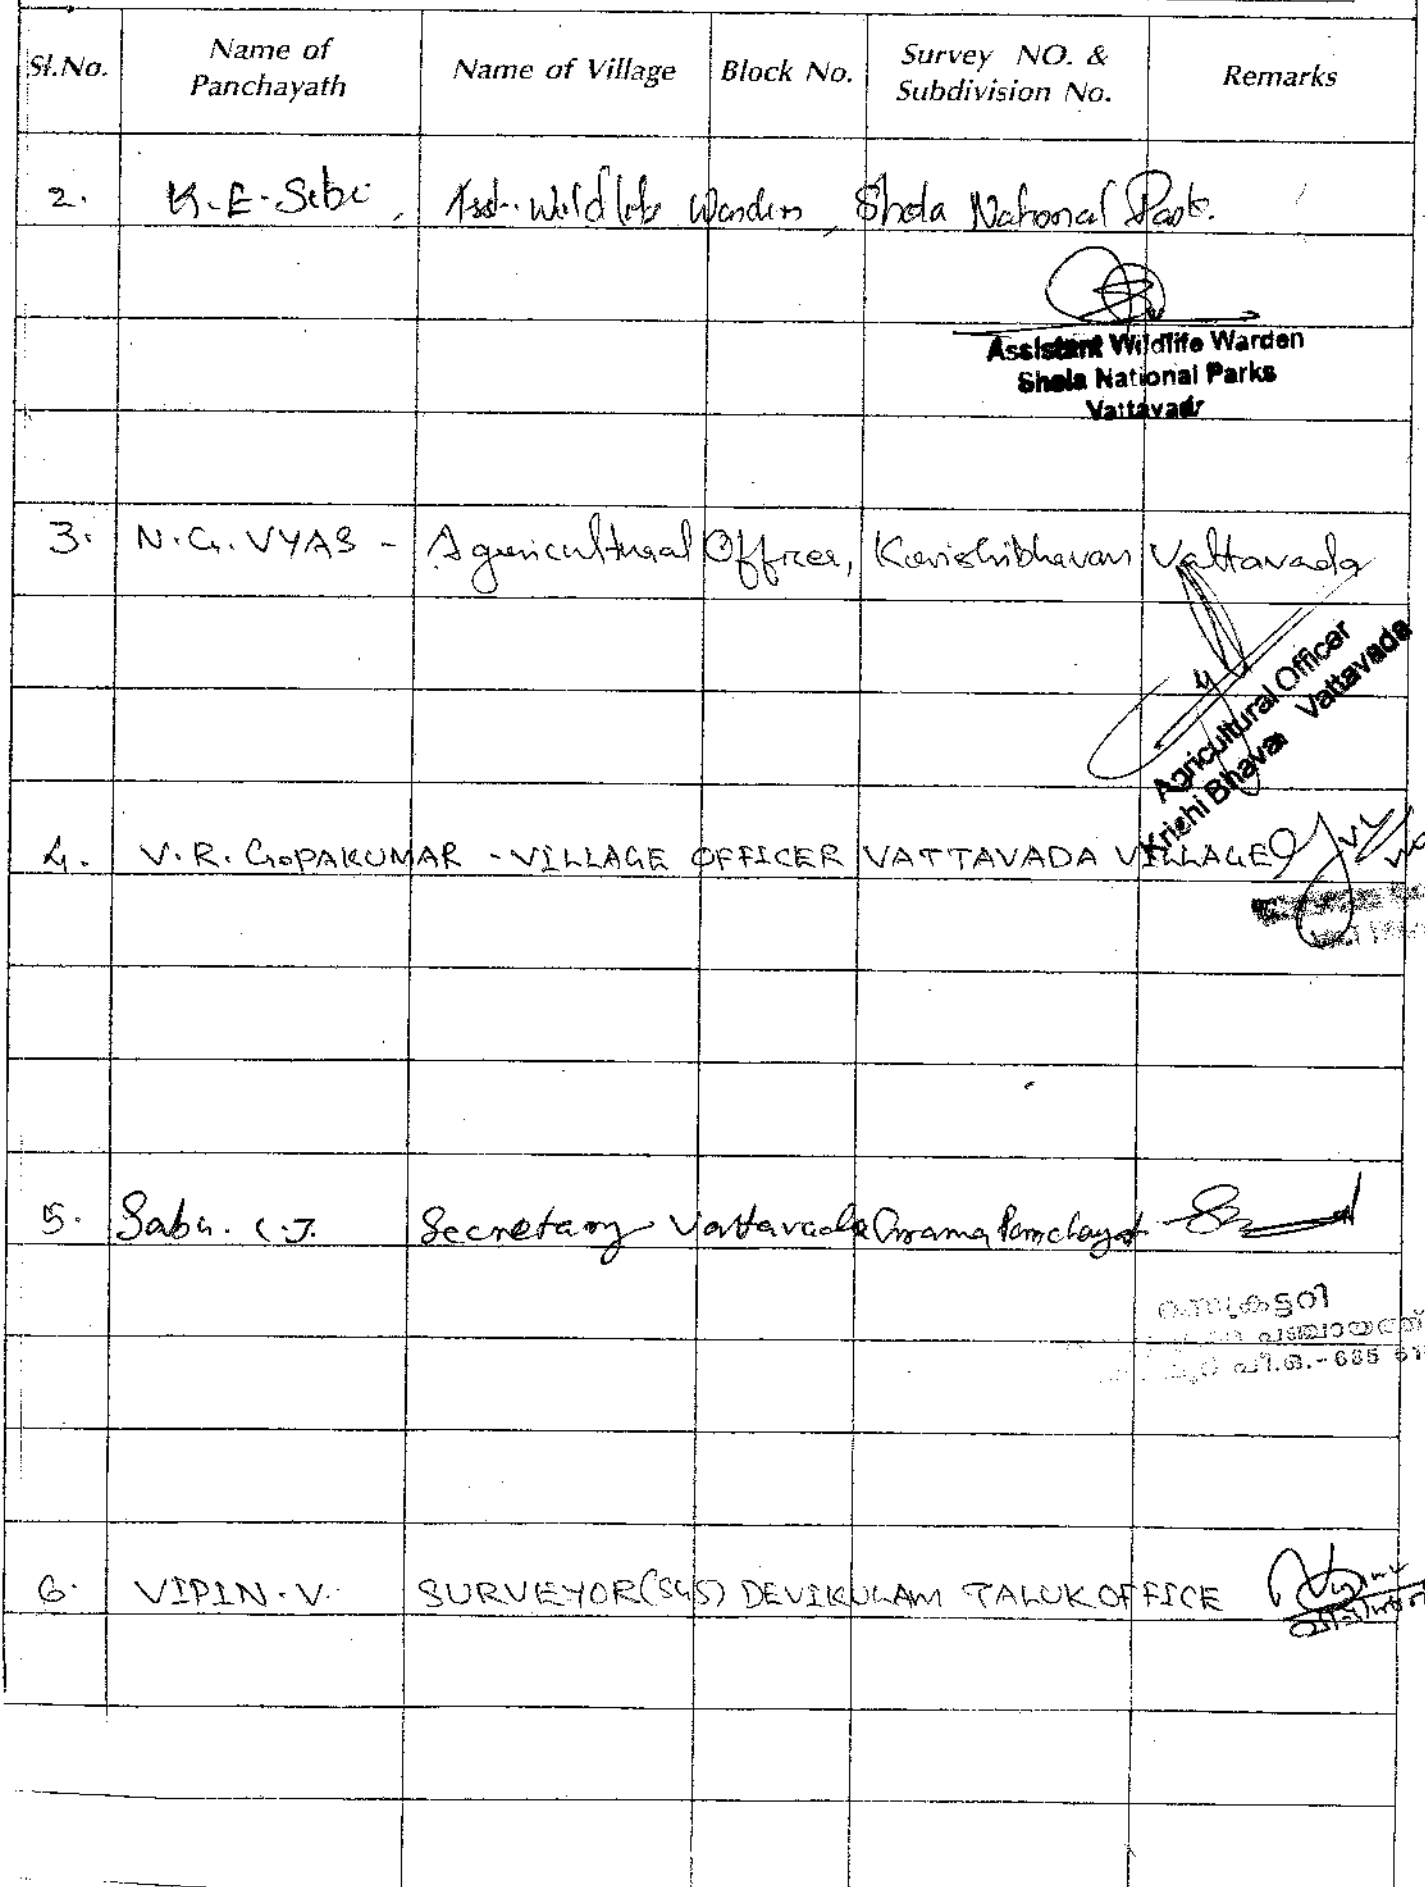 Sl.No. Name of Panchayath Name of Village Block No. Survey NO. & Subdivision No. Remarks
2. K.E. Sibi, Asst. Wildlife Warden, Shola National Park.
Assistant Wildlife Warden
Shola National Parks
Vattavada
3. N.G. VYAS - Agricultural Officer, Karishibhavan Vattavada
Agricultural Officer
Krishi Bhavan Vattavada
4. V.R. GOPAKUMAR - VILLAGE OFFICER VATTAVADA VILLAGE
5. Sabu. C.J. Secretary Vattavada Grama Panchayat
പഞ്ചായത്ത്
പി.ഒ.-685
6. VIPIN.V. SURVEYOR(SGS) DEVIKULAM TALUK OFFICE